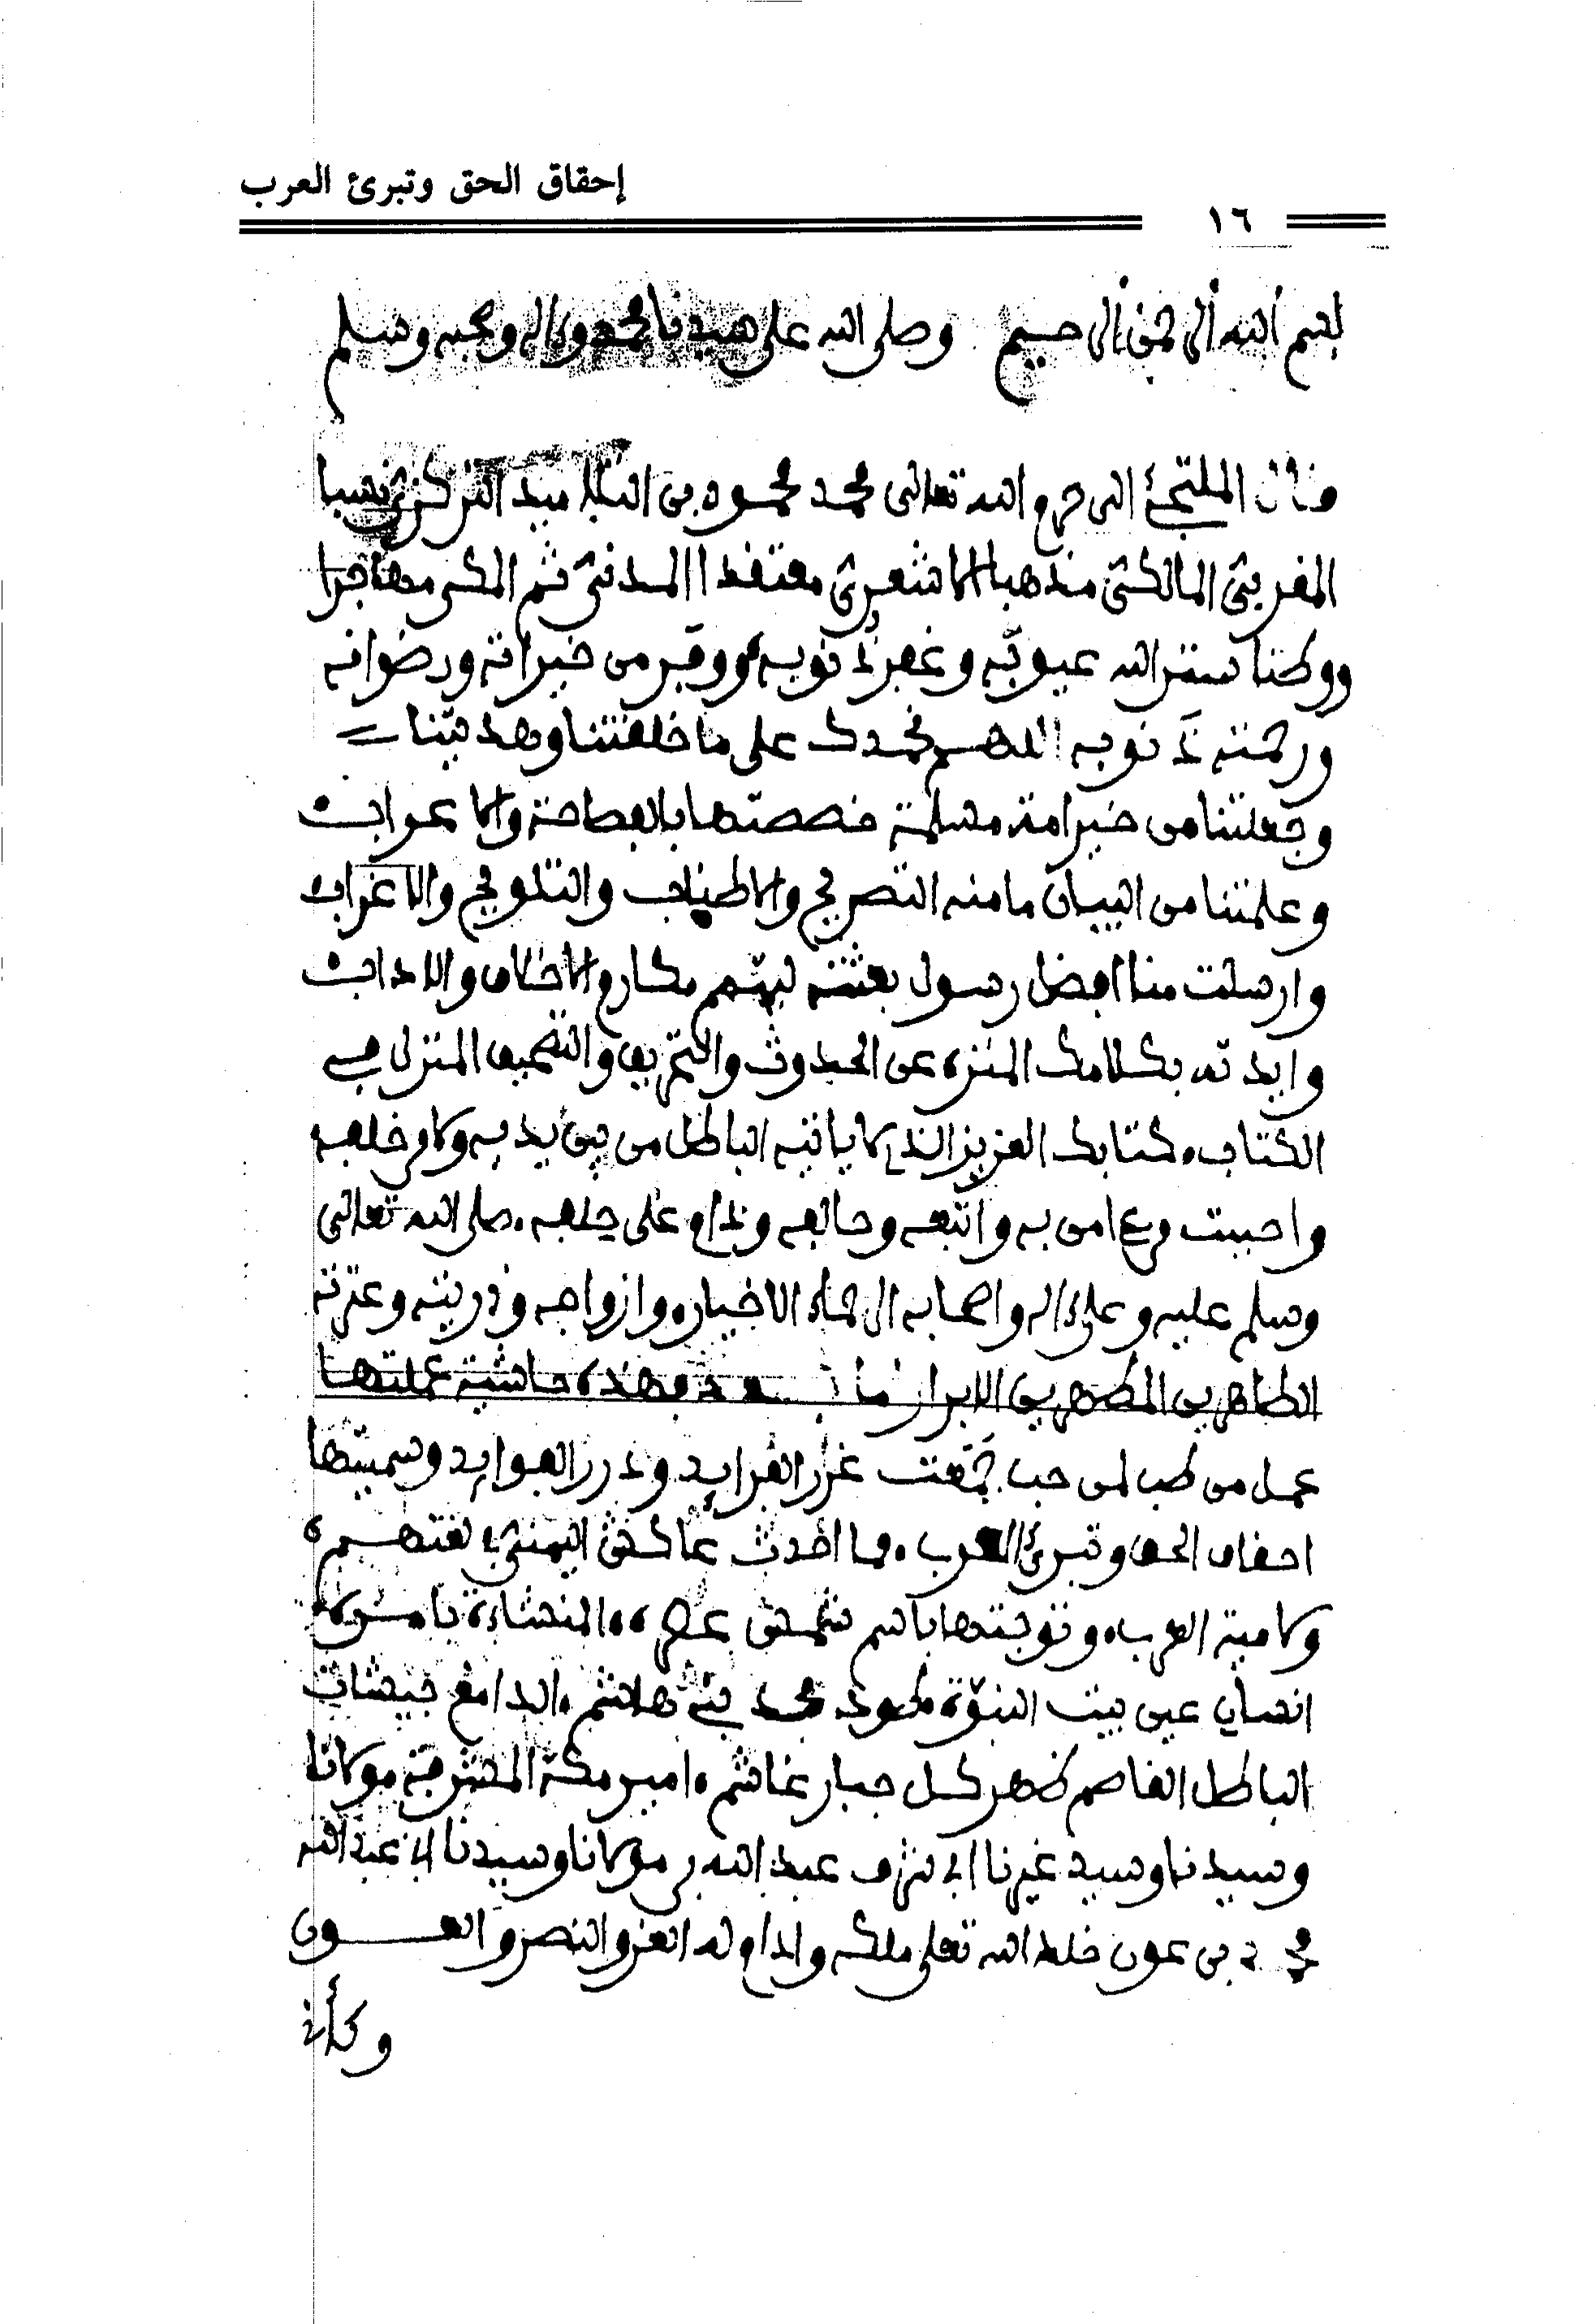 إحقاق الحق وتبرئ العرب
١٦
بسم الله الرحمن الرحيم وصلى الله على سيدنا محمد وءاله وصحبه وسلم
قال الملتجئ الى حرم الله تعالى محمد محمود بن التلاميد التركزي نسبا
المغربي المالكي مذهبا الاشعري معتقدا المدني ثم المكي مهاجرا
ووطنا ستر الله عيوبه وغفر ذنوبه ووفر من خيراته ورضوانه
ورحمته ذنوبه اللهم نحمدك على ما خلقتنا وهديتنا
وجعلتنا من خير امة مسلمة خصصتها بالفصاحة والاعراب
وعلمتنا من البيان ما منه التصريح والاطناب والتلويح والاغراب
وارسلت منا افضل رسول بعثته ليتمم مكارم الاخلاق والاداب
وايدته بكلامك المنزه عن الحدوث والتحريف والتصحيف المنزل في
الكتاب كتابك العزيز الذي لا ياتيه الباطل من بين يديه ولا من خلفه
واحببت من ءامن به واتبعه وحالفه ودام على حلفه صلى الله تعالى
وسلم عليه وعلى ءاله واصحابه الرحماء الاخيار وازواجه وذريته وعترته
الطاهرين المطهرين الابرار اما بعد فهذه حاشية عملتها
عمل من طب لمن حب جمعت غرر الفرايد ودرر الفوايد وسميتها
احقاق الحق وتبرئ العرب مما احدث عاكش اليمني في لغتهم
ولامية العرب وتوجتها باسم شمس عصره المنشاة بامره
انسان عين بيت النبوة طود محمد بني هاشم الدامغ جيشات
الباطل القاصم ظهر كل جبار غاشم امير مكة المشرفة مولانا
وسيدنا وسيد غيرنا الشريف عبد الله بن مولانا وسيدنا ابي عبد الله
محمد بن عون خلد الله تعلى ملكه وادام له العز والنصر والعون
وكأن